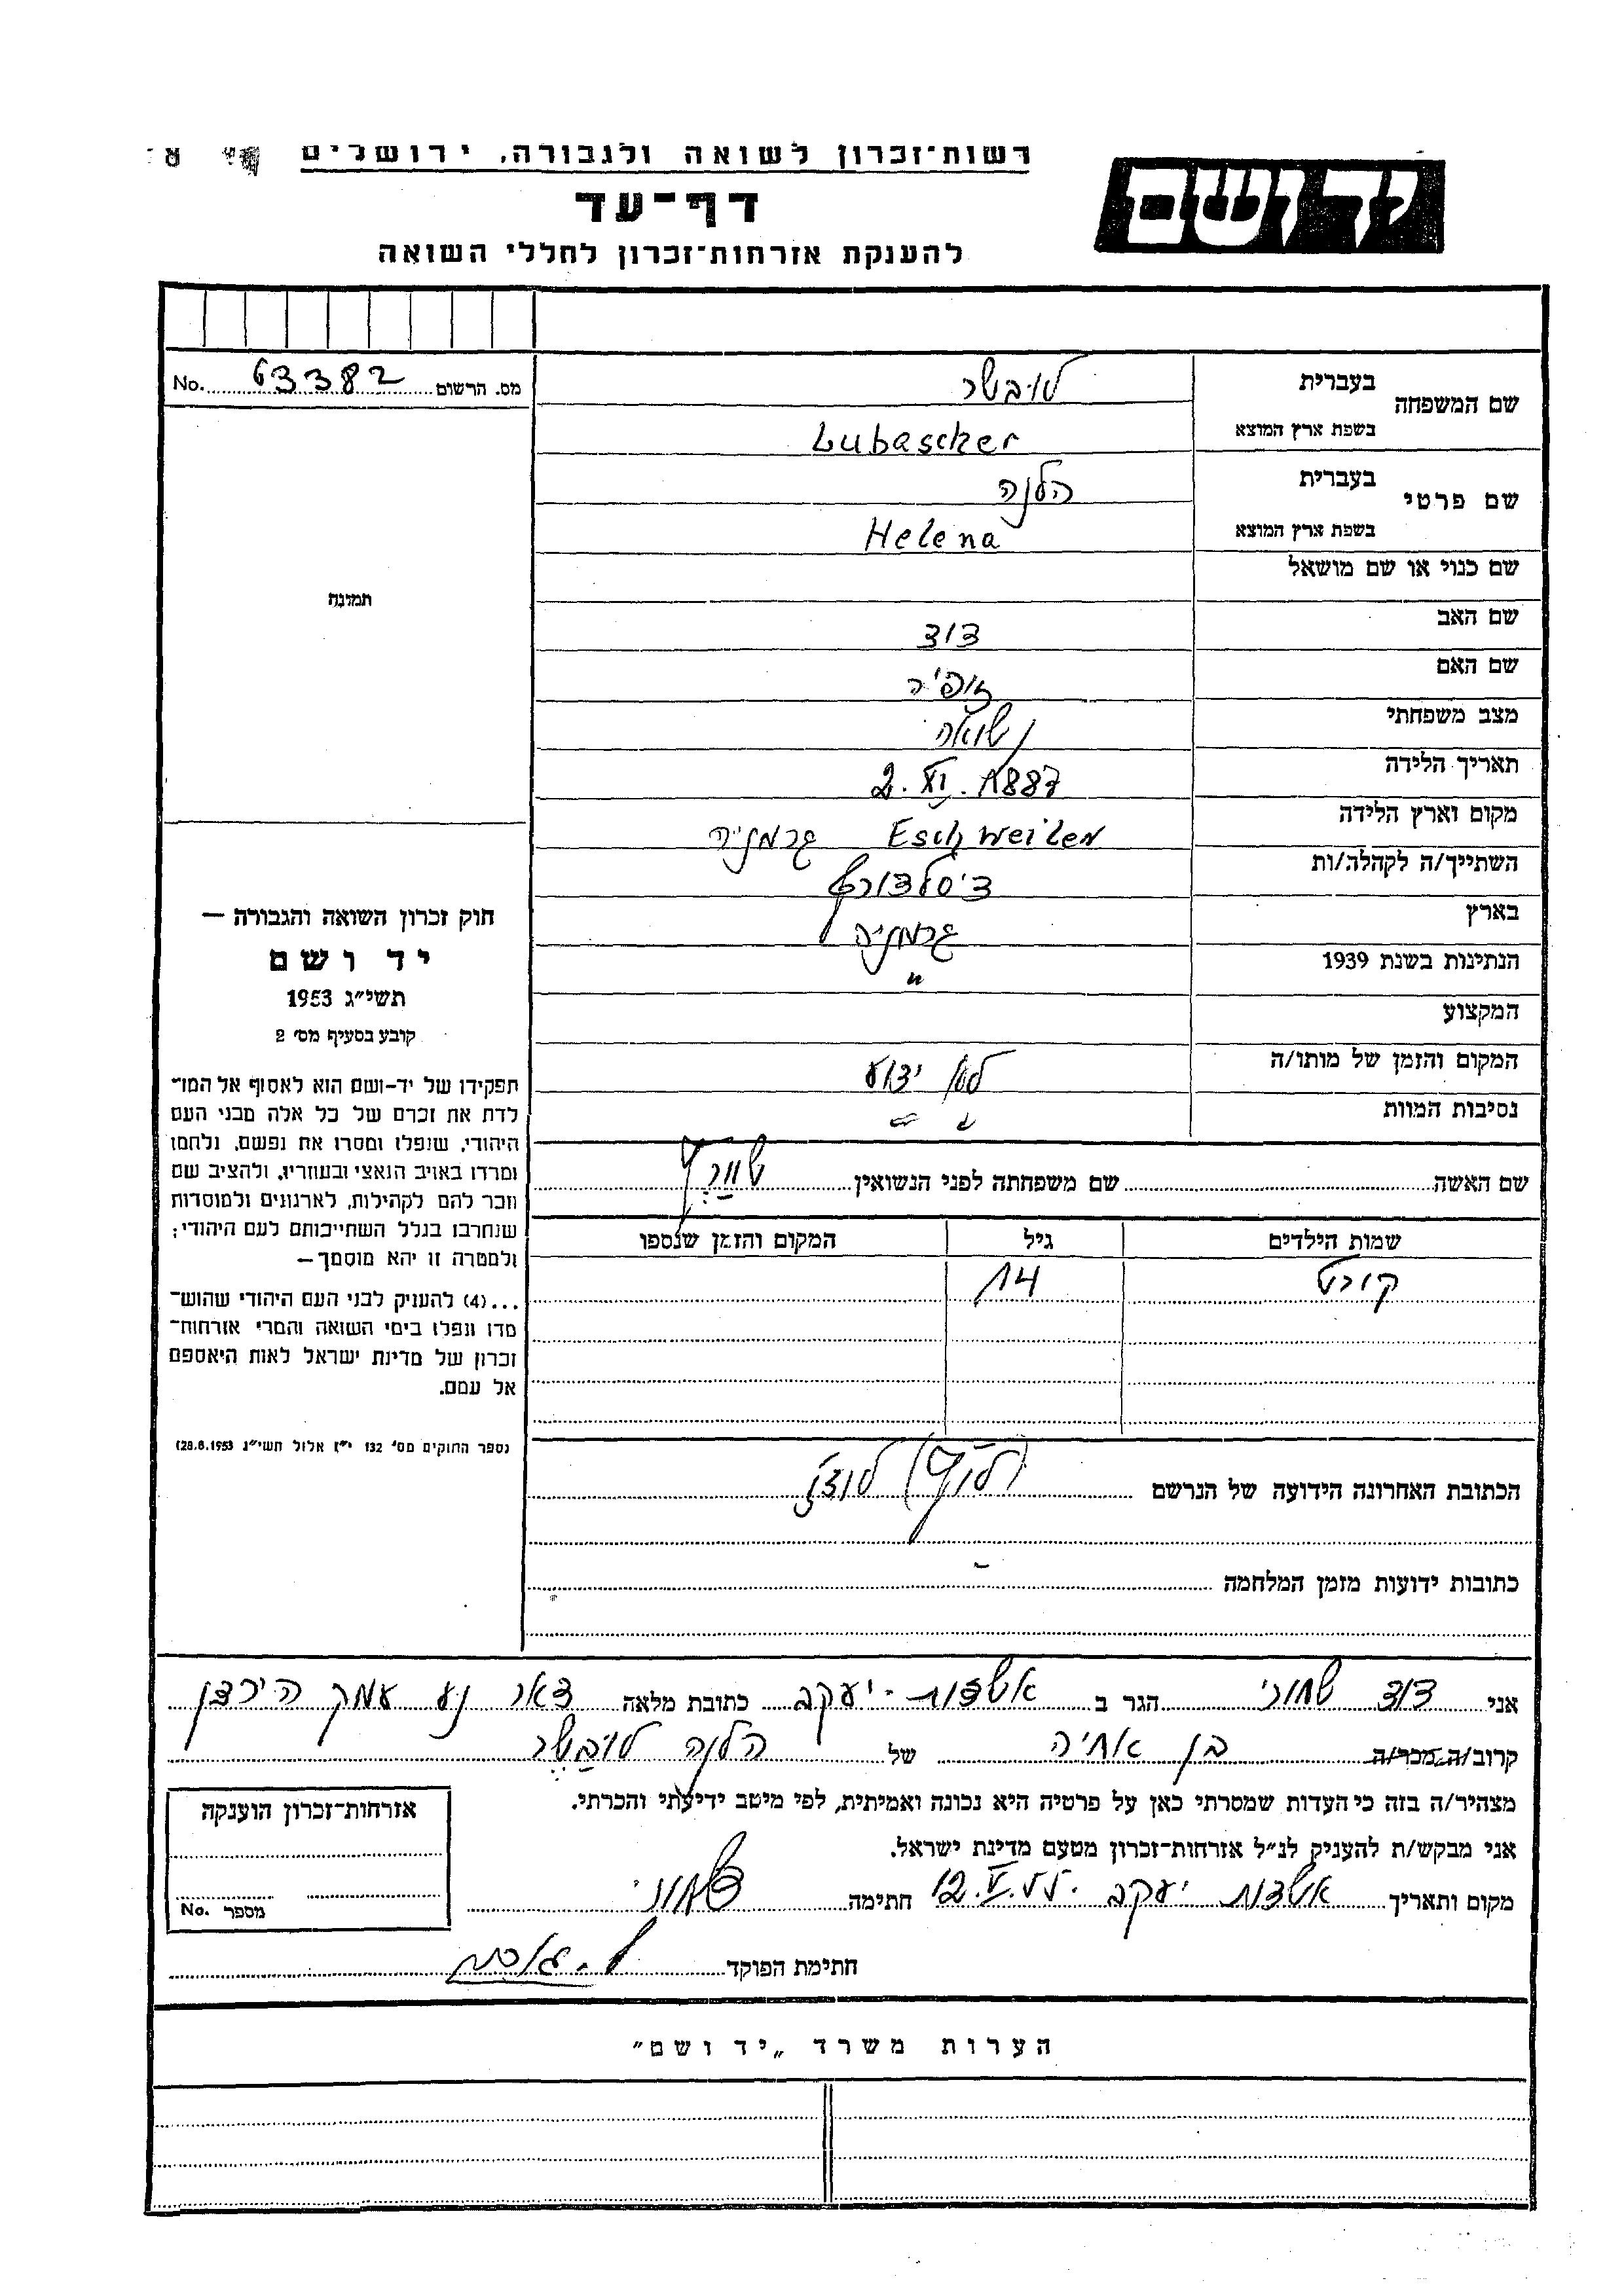 רשות־זכרון לשואה ולגבורה, ירושלים
יד ושם
דף־עד
להענקת אזרחות־זכרון לחללי השואה
מס. הרשום 63382 No.
שם המשפחה
בעברית לובשר
בשפת ארץ המוצא Lubascher
שם פרטי
בעברית הלנה
בשפת ארץ המוצא Helena
שם כנוי או שם מושאל
שם האב דוד
שם האם זופיה
מצב משפחתי נשואה
תאריך הלידה 2. XI. 1887
מקום וארץ הלידה Eschweiler גרמניה
השתייך/ה לקהלה/ות דיסלדורף
בארץ גרמניה
הנתינות בשנת 1939 "
המקצוע
המקום והזמן של מותו/ה לא ידוע
נסיבות המוות
שם האשה שם משפחתה לפני הנשואין שורץ
שמות הילדים גיל המקום והזמן שנספו
קורט 14
הכתובת האחרונה הידועה של הנרשם לודז
כתובות ידועות מזמן המלחמה -
תמונה
חוק זכרון השואה והגבורה —
יד ושם
תשי״ג 1953
קובע בסעיף מס׳ 2
תפקידו של יד-ושם הוא לאסוף אל המו־
לדת את זכרם של כל אלה מבני העם
היהודי, שנפלו ומסרו את נפשם, נלחמו
ומרדו באויב הנאצי ובעוזריו, ולהציב שם
וזכר להם לקהילות, לארגונים ולמוסדות
שנחרבו בגלל השתייכותם לעם היהודי;
ולמטרה זו יהא מוסמך—
...(4) להעניק לבני העם היהודי שהוש־
מדו ונפלו בימי השואה והמרי אזרחות־
זכרון של מדינת ישראל לאות היאספם
אל עמם.
(ספר החוקים מס׳ 132 י״ז אלול תשי״ג 28.8.1953)
אני דוד שחורי הגר ב אשדות-יעקב כתובת מלאה דאר נע עמק הירדן
קרוב/ה מכר/ה בן אחיה של הלנה לובשר
מצהיר/ה בזה כי העדות שמסרתי כאן על פרטיה היא נכונה ואמיתית, לפי מיטב ידיעתי והכרתי.
אני מבקש/ת להעניק לנ״ל אזרחות־זכרון מטעם מדינת ישראל.
מקום ותאריך אשדות יעקב 12.V.55. חתימה ד שחורי
חתימת הפוקד
אזרחות־זכרון הוענקה
מספר No.
הערות משרד „יד ושם״